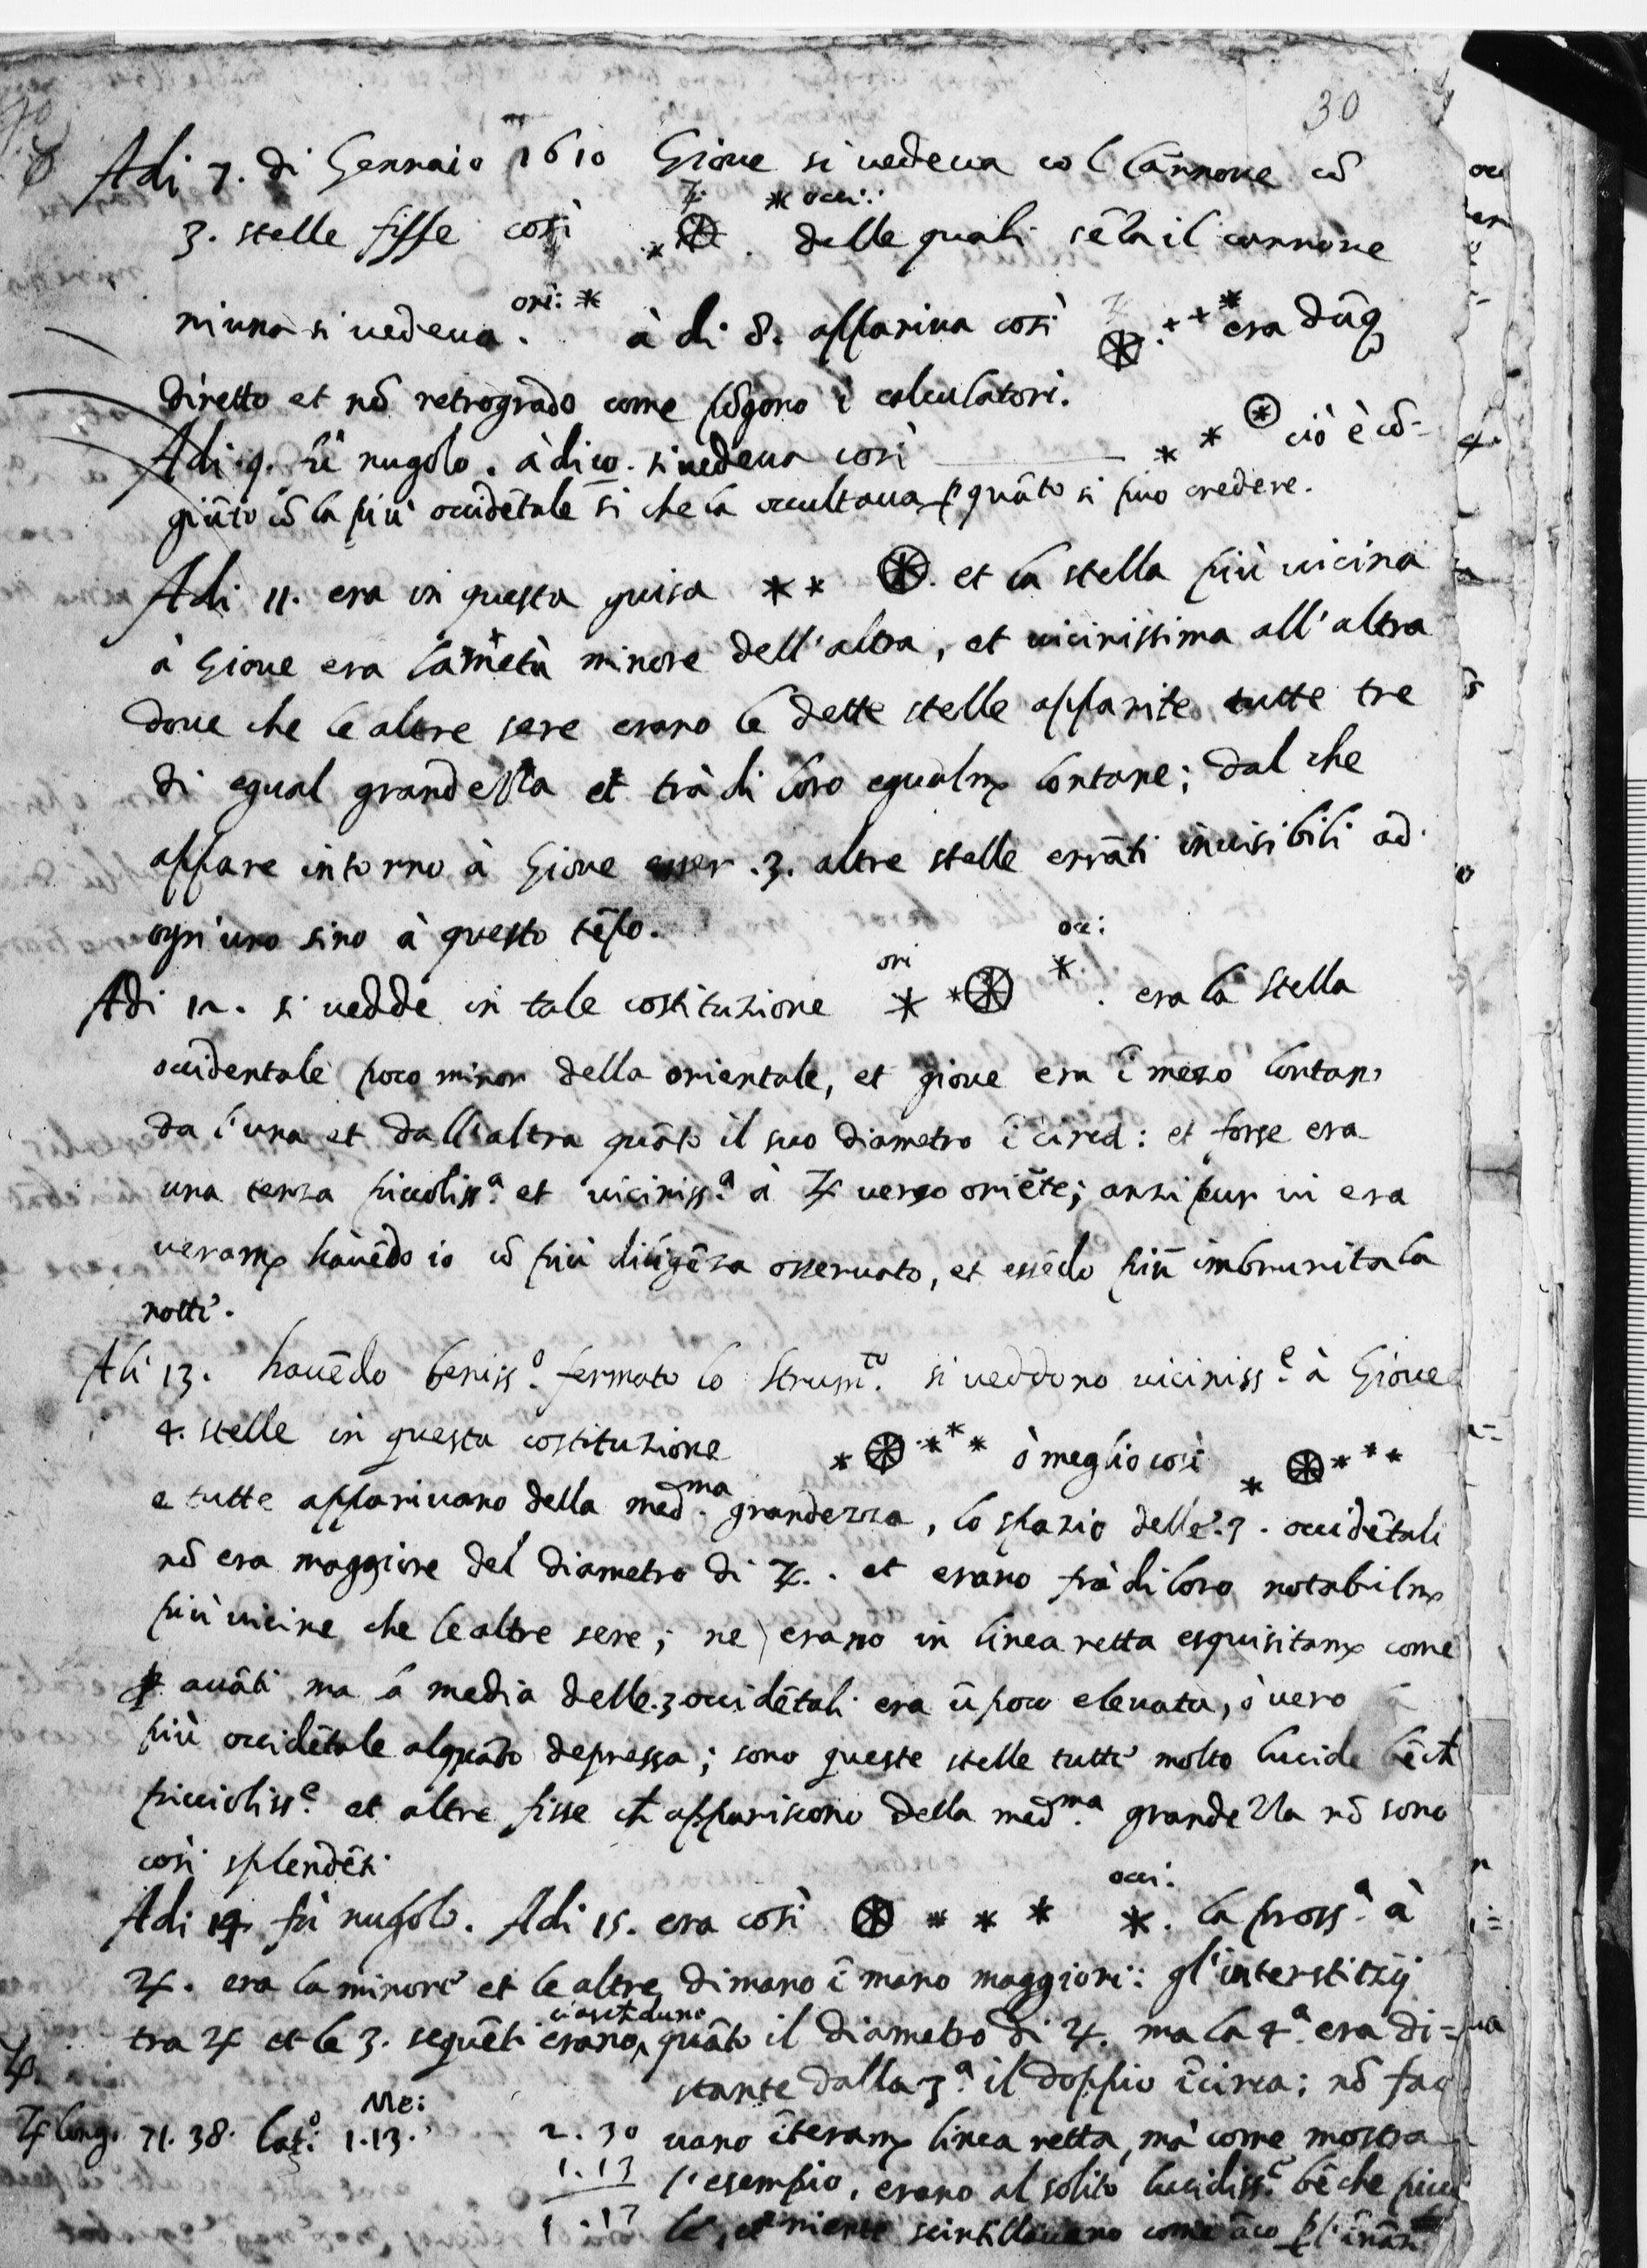 30
Adi 7. di Gennaio 1610 Giove si vedeva col Cannone cō
3. stelle fisse così ♃ * occi: delle quali sēza il cannone
niuna si vedeva. ori: * à dì 8. appariva così * era dūq
diretto et nō retrogrado come pōgono i calcolatori.
Adi 9. fù nugolo. à di 10. si vedeva così * * ciò è cō-
giūto cō la più occidētale sì che la occultava p quāto si può credere.
Adi 11. era in questa guisa * * et la stella più vicina
à Giove era la metà minore dell'altra, et vicinissima all'altra
dove che le altre sere erano le dette stelle apparite tutte tre
di egual grandezza et trà di loro egualm. lontane; dal che
appare intorno à Giove esser .3. altre stelle errāti invisibili ad
ogn'uno sino à questo tēpo.
ori occ:
Adi 12. si vedde in tale costituzione * * * . era la stella
occidentale poco minor della orientale, et giove era ī mezo lontano
da l'una et dall'altra quāto il suo diametro ī circa: et forse era
una terza piccoliss.a et viciniss.a à ♃ verso oriēte; anzi pur vi era
veram. havēdo io cō più diligēza osservato, et essēdo più imbrunita la
notte.
Adi 13. havēdo beniss.o fermato lo strum.to si veddono viciniss.e à Giove
4. stelle in questa costituzione * * * * ò meglio così * * * *
e tutte apparivano della med.ma grandezza, lo spazio delle .3. occidētali
nō era maggiore del diametro di ♃. et erano frà di loro notabilm.
più vicine che le altre sere; ne erano in linea retta esquisitam. come
p avāti ma la media delle .3 occidētali era ū poco elevata, ò vero la
più occidētale alquāto depressa; sono queste stelle tutte molto lucide bēch
piccioliss.e et altre fisse ch appariscono della med.ma grandezza nō sono
così splendēti
occi:
Adi 14 fù nugolo. Adi 15. era così * * * * . la pross.a à
♃. era la minore et le altre di mano ī mano maggiori: gl'interstizij
ciasch'duno
tra ♃ et le 3. seguēti erano, quāto il diametro di ♃. ma la 4.a era di=
stante dalla 3.a il doppio ī circa; nō fac
♃ long. 71. 38. lat: Me: 1.13. 2. 30 vano īteram. linea retta, mà come mostra
1.13 l'esempio, erano al solito lucidiss.e bē che picco
1.17 le, et niente scintillavano come āco p l'inān